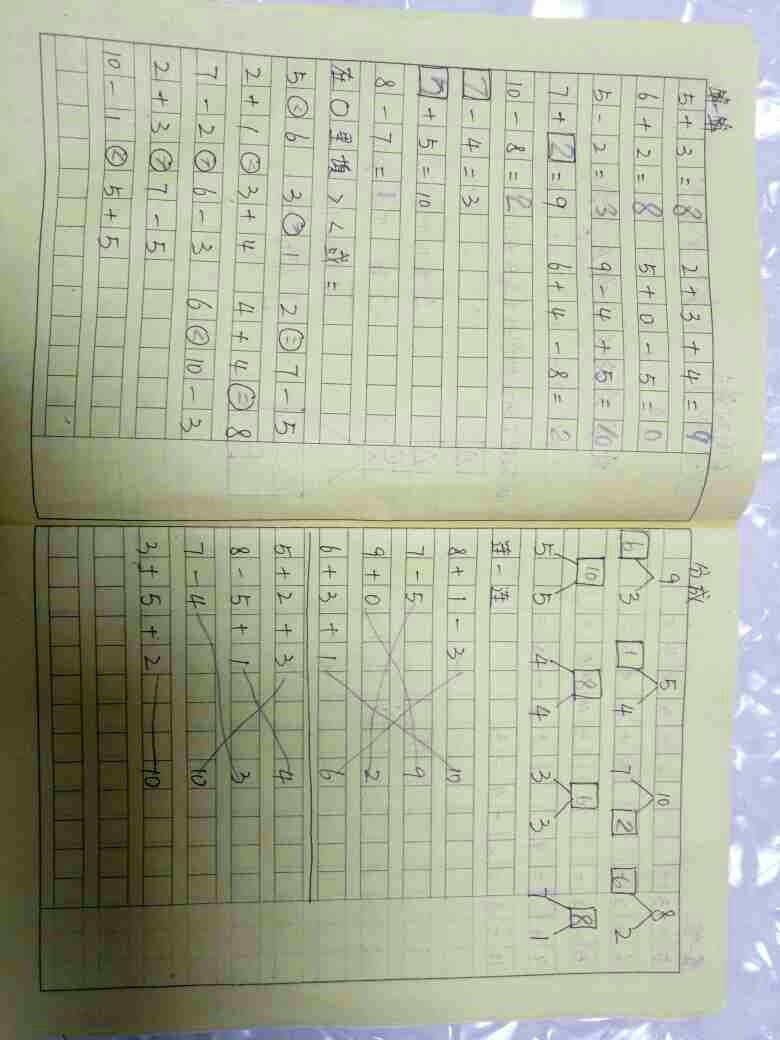 算一算
5+3=8 2+3+4=9
6+2=8 5+0-5=0
5-2=3 9-4+5=10
7+2=9 6+4-8=2
10-8=2
7-4=3
5+5=10
8-7=1
在○里填><或=
5<6 3>1 2=7-5
2+1<3+4 4+4=8
7-2>6-3 6<10-3
2+3>7-5
10-1<5+5
分成
9 5 10 8
6 3 1 4 7 2 6 2
10 8 6 8
5 5 4 4 3 3 7 1
连一连
8+1-3 10
7-5 9
9+0 2
6+3+1 6
5+2+3 4
8-5+1 3
7-4 10
3+5+2 10